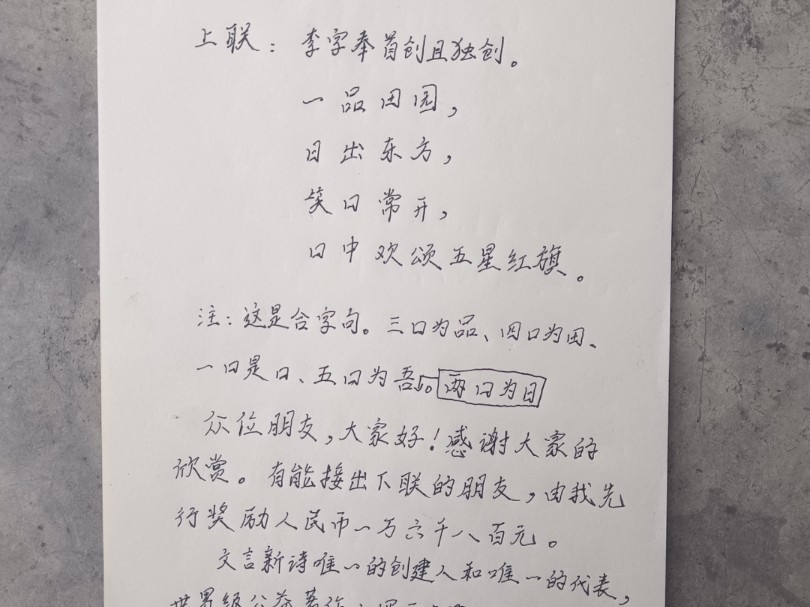 上联：李字奉首创且独创。
一品田园，
日出东方，
笑口常开，
口中欢颂五星红旗。
注：这是合字句。三口为品、四口为田、
一口是口、五口为吾。两口为日
众位朋友，大家好！感谢大家的
欣赏。有能接出下联的朋友，由我先
行奖励人民币一万六千八百元。
文言新诗唯一的创建人和唯一的代表，
世界级公益著作